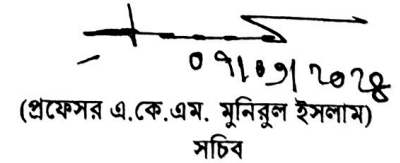 ০৭/০১/২০২৪
(প্রফেসর এ.কে.এম. মুনিরুল ইসলাম)
সচিব